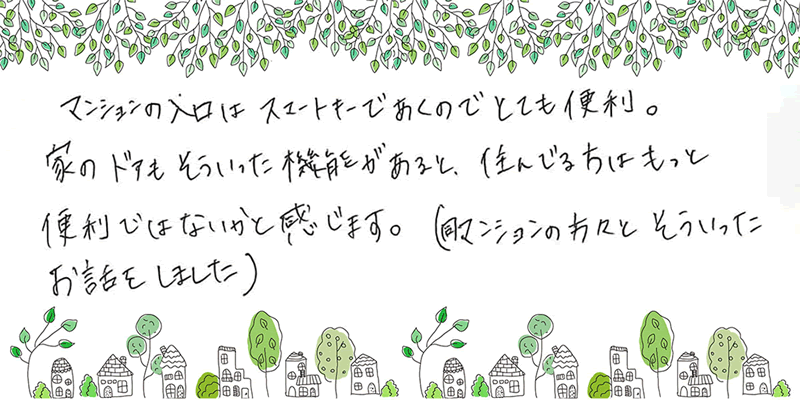 マンションの入口はスマートキーであくのでとても便利。
家のドアもそういった機能があると、住んでる方はもっと
便利ではないかと感じます。(同マンションの方々とそういった
お話をしました)